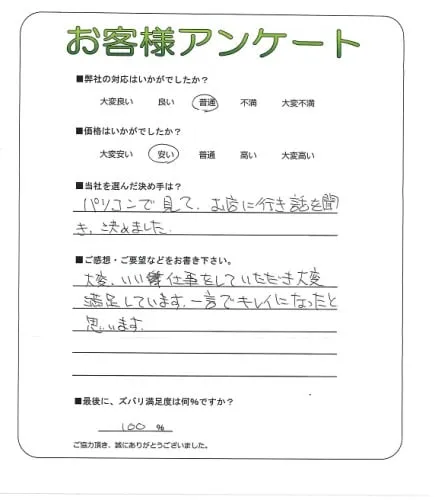 お客様アンケート
■弊社の対応はいかがでしたか?
大変良い 良い 普通 不満 大変不満
■価格はいかがでしたか?
大変安い 安い 普通 高い 大変高い
■当社を選んだ決め手は?
パソコンで見て、お店に行き話を聞
き、決めました。
■ご感想・ご要望などをお書き下さい。
大変、いい仕事をしていただき大変
満足しています。一言でキレイになったと
思います。
■最後に、ズバリ満足度は何%ですか?
100 %
ご協力頂き、誠にありがとうございました。